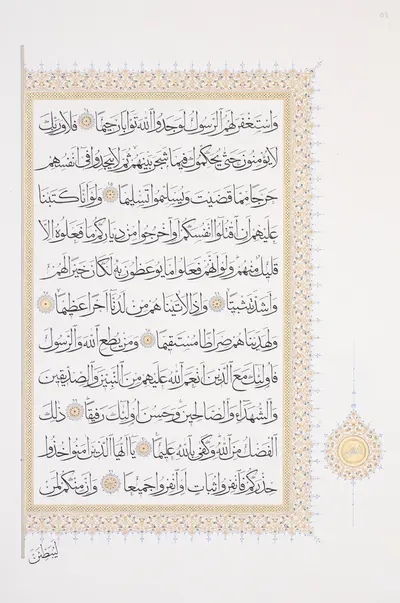 وَاسْتَغْفَرَ لَهُمُ الرَّسُولُ لَوَجَدُوا اللَّهَ تَوَّابًا رَحِيمًا ۝ فَلَا وَرَبِّكَ
لَا يُؤْمِنُونَ حَتَّىٰ يُحَكِّمُوكَ فِيمَا شَجَرَ بَيْنَهُمْ ثُمَّ لَا يَجِدُوا فِي أَنْفُسِهِمْ
حَرَجًا مِمَّا قَضَيْتَ وَيُسَلِّمُوا تَسْلِيمًا ۝ وَلَوْ أَنَّا كَتَبْنَا
عَلَيْهِمْ أَنِ اقْتُلُوا أَنْفُسَكُمْ أَوِ اخْرُجُوا مِنْ دِيَارِكُمْ مَا فَعَلُوهُ إِلَّا
قَلِيلٌ مِنْهُمْ وَلَوْ أَنَّهُمْ فَعَلُوا مَا يُوعَظُونَ بِهِ لَكَانَ خَيْرًا لَهُمْ
وَأَشَدَّ تَثْبِيتًا ۝ وَإِذًا لَآتَيْنَاهُمْ مِنْ لَدُنَّا أَجْرًا عَظِيمًا ۝
وَلَهَدَيْنَاهُمْ صِرَاطًا مُسْتَقِيمًا ۝ وَمَنْ يُطِعِ اللَّهَ وَالرَّسُولَ
فَأُولَٰئِكَ مَعَ الَّذِينَ أَنْعَمَ اللَّهُ عَلَيْهِمْ مِنَ النَّبِيِّينَ وَالصِّدِّيقِينَ
وَالشُّهَدَاءِ وَالصَّالِحِينَ وَحَسُنَ أُولَٰئِكَ رَفِيقًا ۝ ذَٰلِكَ
الْفَضْلُ مِنَ اللَّهِ وَكَفَىٰ بِاللَّهِ عَلِيمًا ۝ يَا أَيُّهَا الَّذِينَ آمَنُوا خُذُوا
حِذْرَكُمْ فَانْفِرُوا ثُبَاتٍ أَوِ انْفِرُوا جَمِيعًا ۝ وَإِنَّ مِنْكُمْ لَمَنْ
لَيُبَطِّئَنَّ